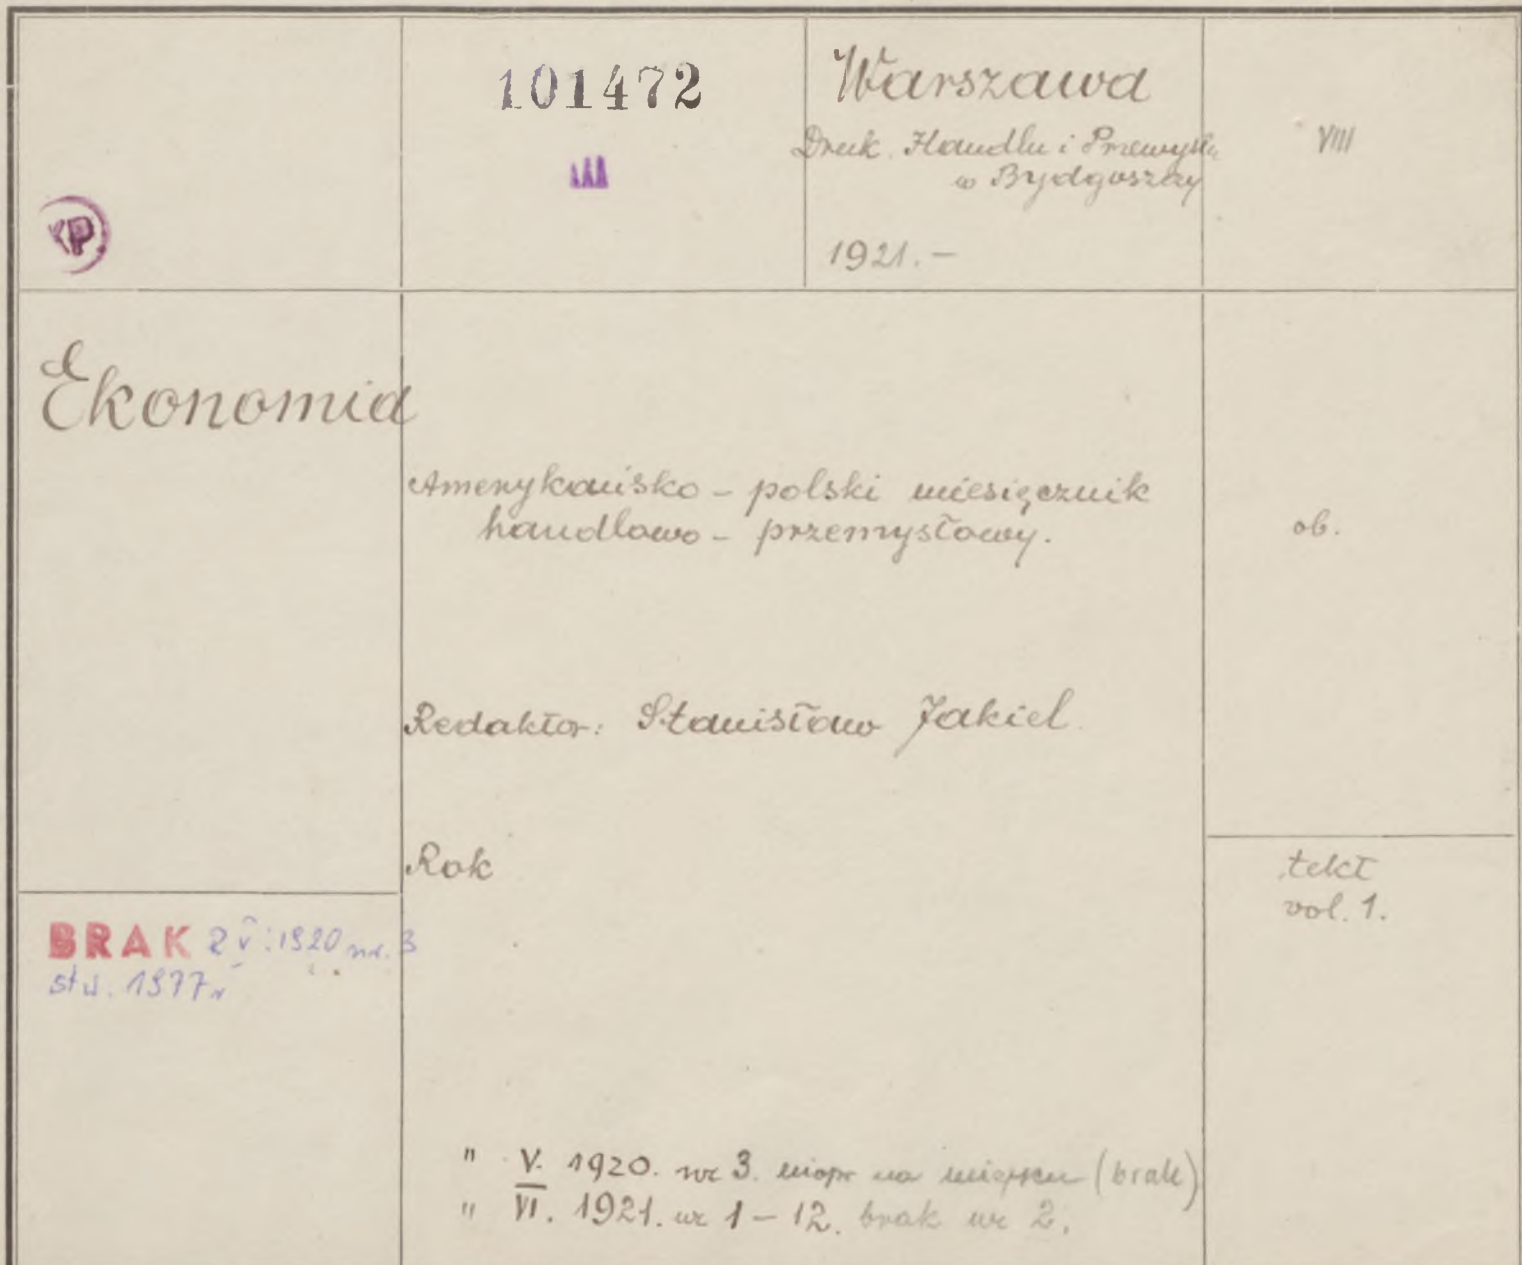 101472
III
Warszawa
Druk. Handlu i Przemysłu
w Bydgoszczy
1921.-
VIII
KP
Ekonomia
Amerykańsko - polski miesięcznik
handlowo - przemysłowy.
ob.
Redaktor: Stanisław Jakiel
Rok
tekt
vol. 1.
BRAK 2 V. 1920 nr. 3
1977r
" V. 1920. nr 3. na miejscu (brak)
" VI. 1921. nr 1 - 12. brak nr 2.